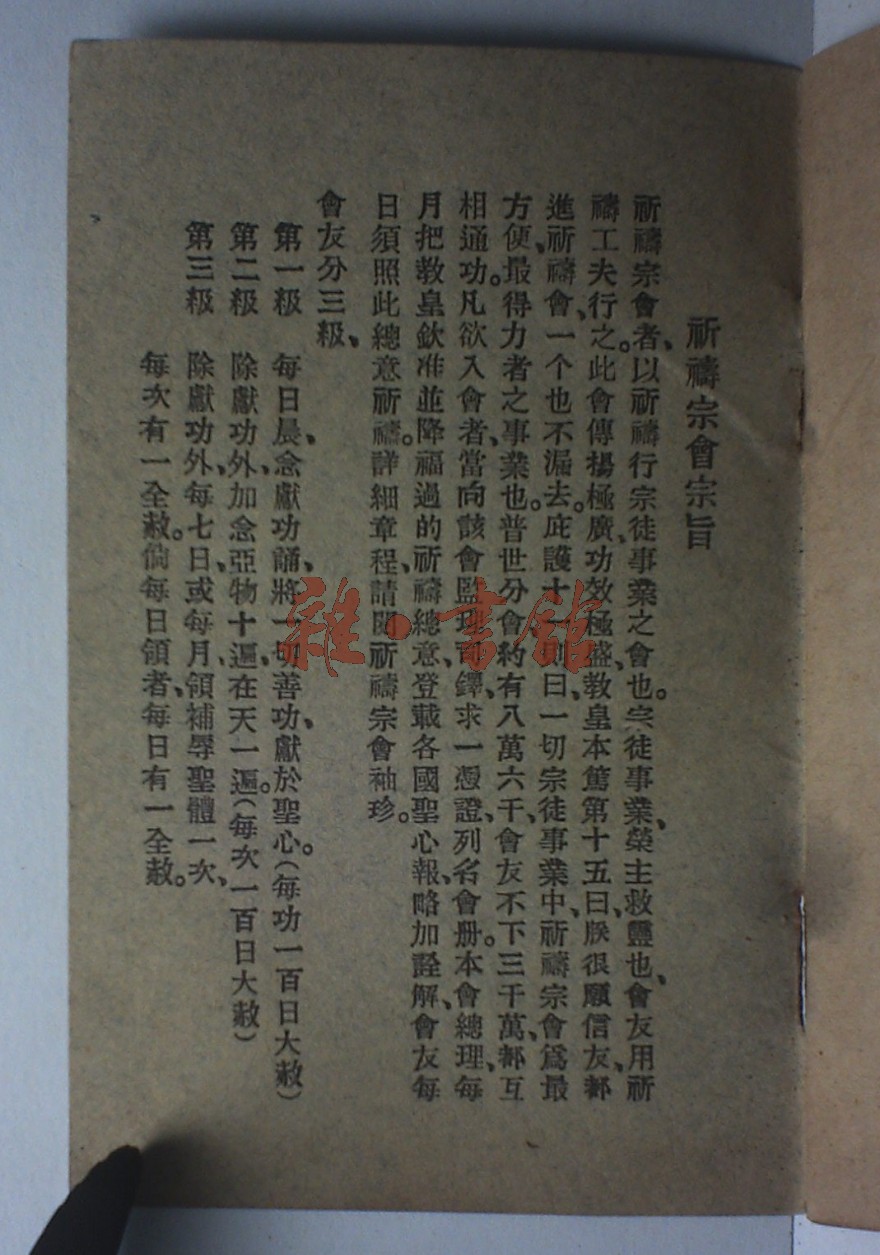 祈禱宗會宗旨
祈禱宗會者、以祈禱行宗徒事業之會也。宗徒事業、榮主救靈也、會友用祈
禱工夫行之。此會傳揚極廣、功效極盛、教皇本篤第十五曰、朕很願信友、都
進祈禱會、一个也不漏去。庇護十一則曰、一切宗徒事業中、祈禱宗會爲最
方便、最得力者之事業也。普世分會、約有八萬六千、會友不下三千萬、都互
相通功。凡欲入會者、當向該會監理司鐸、求一憑證、列名會册。本會總理、每
月把教皇欽准並降福過的祈禱總意、登載各國聖心報、略加詮解、會友每
日須照此總意祈禱。詳細章程、請閱祈禱宗會袖珍。
會友分三級、
第一級　每日晨、念獻功誦、將一切善功、獻於聖心。（每功一百日大赦）
第二級　除獻功外、加念亞物十遍、在天一遍。（每次一百日大赦）
第三級　除獻功外、每七日、或每月、領補辱聖體一次、
每次有一全赦。倘每日領者、每日有一全赦。
雜·書館